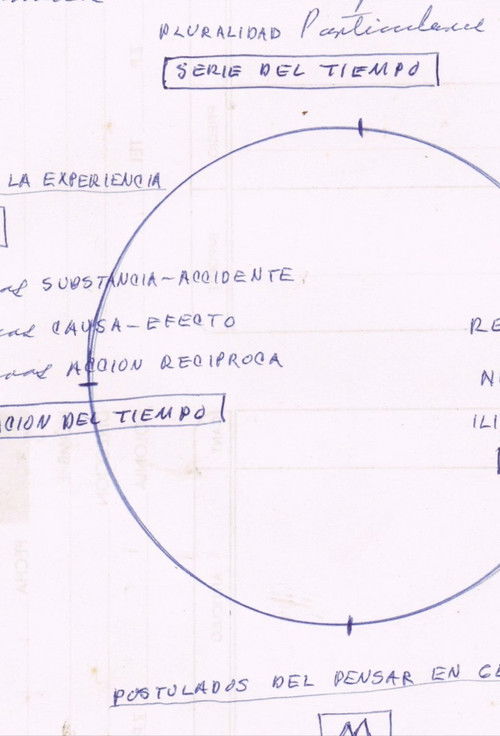 PLURALIDAD Particulares
SERIE DEL TIEMPO
LA EXPERIENCIA
SUBSTANCIA-ACCIDENTE
CAUSA-EFECTO
ACCION RECIPROCA
RE
CION DEL TIEMPO
N
ILI
POSTULADOS DEL PENSAR EN GE
M